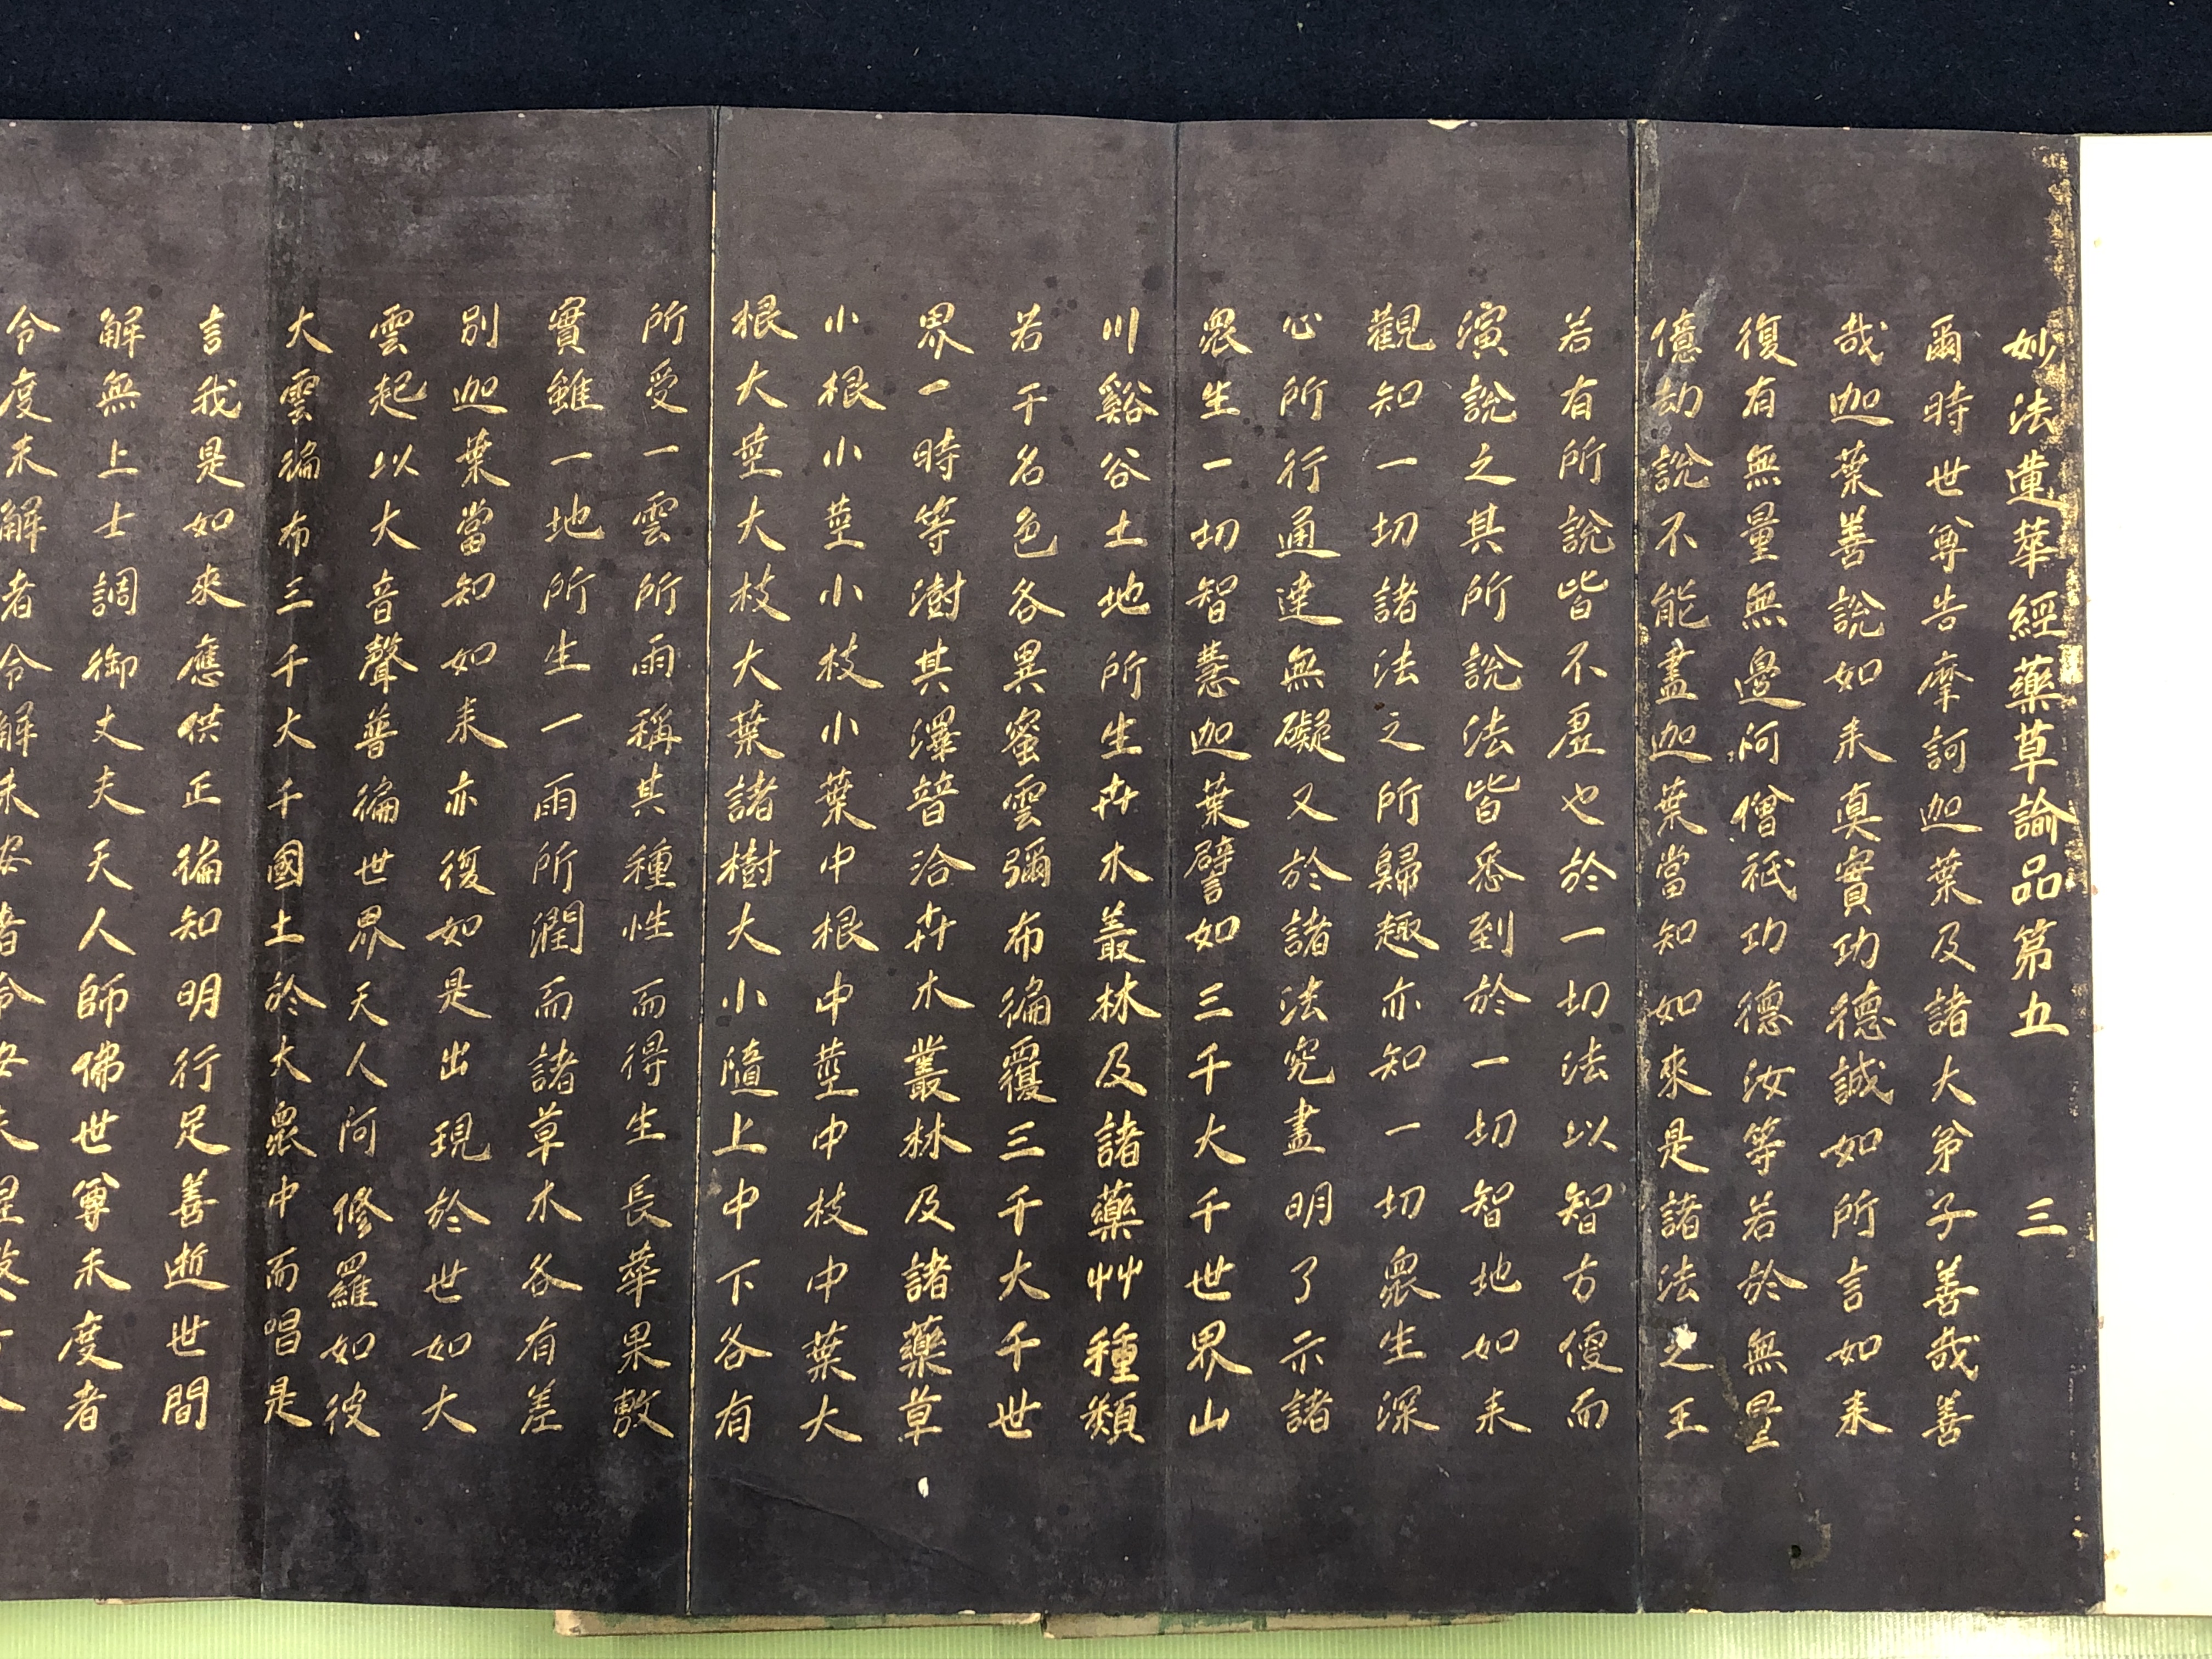 妙法蓮華經藥草喻品第五 三
爾時世尊告摩訶迦葉及諸大弟子善哉善
哉迦葉善說如來真實功德誠如所言如來
復有無量無邊阿僧祇功德汝等若於無量
億劫說不能盡迦葉當知如來是諸法之王
若有所說皆不虛也於一切法以智方便而
演說之其所說法皆悉到於一切智地如來
觀知一切諸法之所歸趣亦知一切眾生深
心所行通達無礙又於諸法究盡明了示諸
眾生一切智慧迦葉譬如三千大千世界山
川谿谷土地所生卉木叢林及諸藥艸種類
若干名色各異蜜雲彌布徧覆三千大千世
界一時等澍其澤普洽卉木叢林及諸藥草
小根小莖小枝小葉中根中莖中枝中葉大
根大莖大枝大葉諸樹大小隨上中下各有
所受一雲所雨稱其種性而得生長華果敷
實雖一地所生一雨所潤而諸草木各有差
別迦葉當知如來亦復如是出現於世如大
雲起以大音聲普徧世界天人阿修羅如彼
大雲徧布三千大千國土於大眾中而唱是
言我是如來應供正徧知明行足善逝世間
解無上士調御丈夫天人師佛世尊未度者
令度未解者令解未安者令安未涅